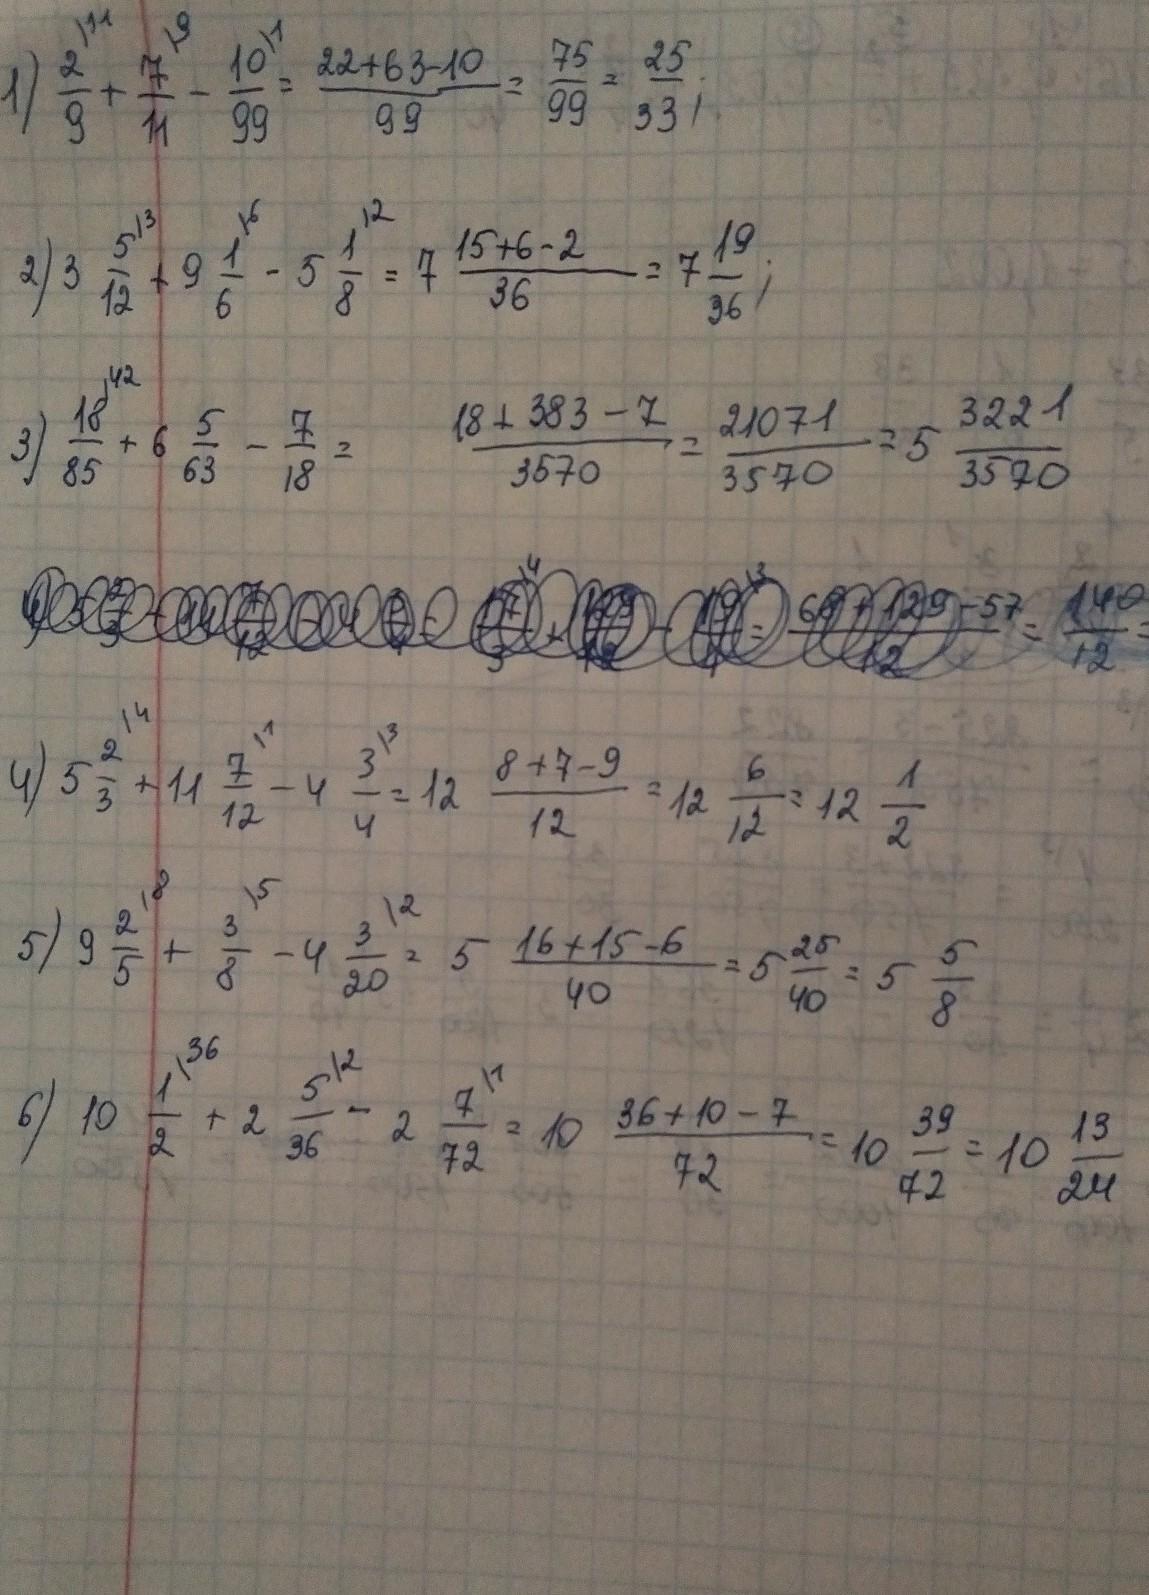 1) 2/9 \11 + 7/11 \9 - 10/99 \1 = 22+63-10/99 = 75/99 = 25/33;
2) 3 5/12 \3 + 9 1/6 \6 - 5 1/8 \2 = 7 15+6-2/36 = 7 19/36;
3) 18/85 \42 + 6 5/63 - 7/18 = 18+383-7/3570 = 21071/3570 = 5 3221/3570
4) 5 2/3 \4 + 11 7/12 \1 - 4 3/4 \3 = 12 8+7-9/12 = 12 6/12 = 12 1/2
5) 9 2/5 \8 + 3/8 \5 - 4 3/20 \2 = 5 16+15-6/40 = 5 25/40 = 5 5/8
6) 10 1/2 \36 + 2 5/36 \2 - 2 7/72 \1 = 10 36+10-7/72 = 10 39/72 = 10 13/24